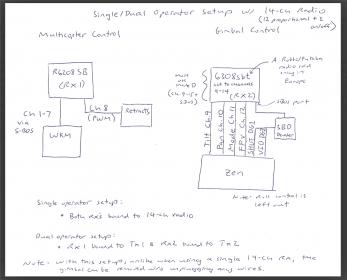 Single/Dual Operator Setup w/ 14-ch Radio
(12 proportional + 2 on/off)
Multicopter Control
Gimbal Control
R6208SB
(Rx1)
Ch 1-7
via
S-BUS
Ch 8
(PWM)
Retracts
WKM
must
use
mode D
6308SBT
set to channels
9-14
(Rx2)
A Robbe/Futaba
radio sold
only in
Europe
SBUS port
SBD
Decoder
Tilt Ch.9
Pan Ch.10
Mode Ch.11
FPV Ch.12
SHUT DG1
VID DG2
Zen
Note: Roll control is
left out
Single operator setup:
• Both Rx's bound to 14-ch radio
Dual operator setup:
• Rx1 bound to Tx1 & Rx2 bound to Tx2
Note: With this setup, unlike when using a single 14-ch Rx, the
gimbal can be removed w/o unplugging any wires.